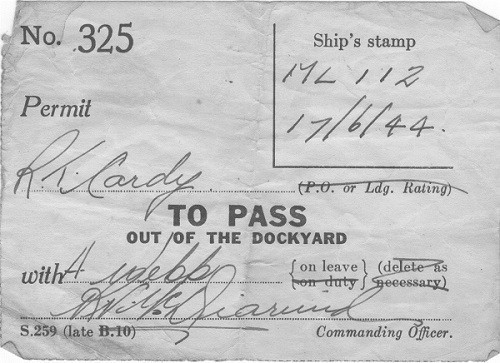 No. 325
Ship's stamp
ML 112
17/6/44.
Permit
R. K. Cardy
(P.O. or Ldg. Rating)
TO PASS
OUT OF THE DOCKYARD
with A Webb {on leave / on duty} (delete as necessary)
S.259 (late B.10) Commanding Officer.